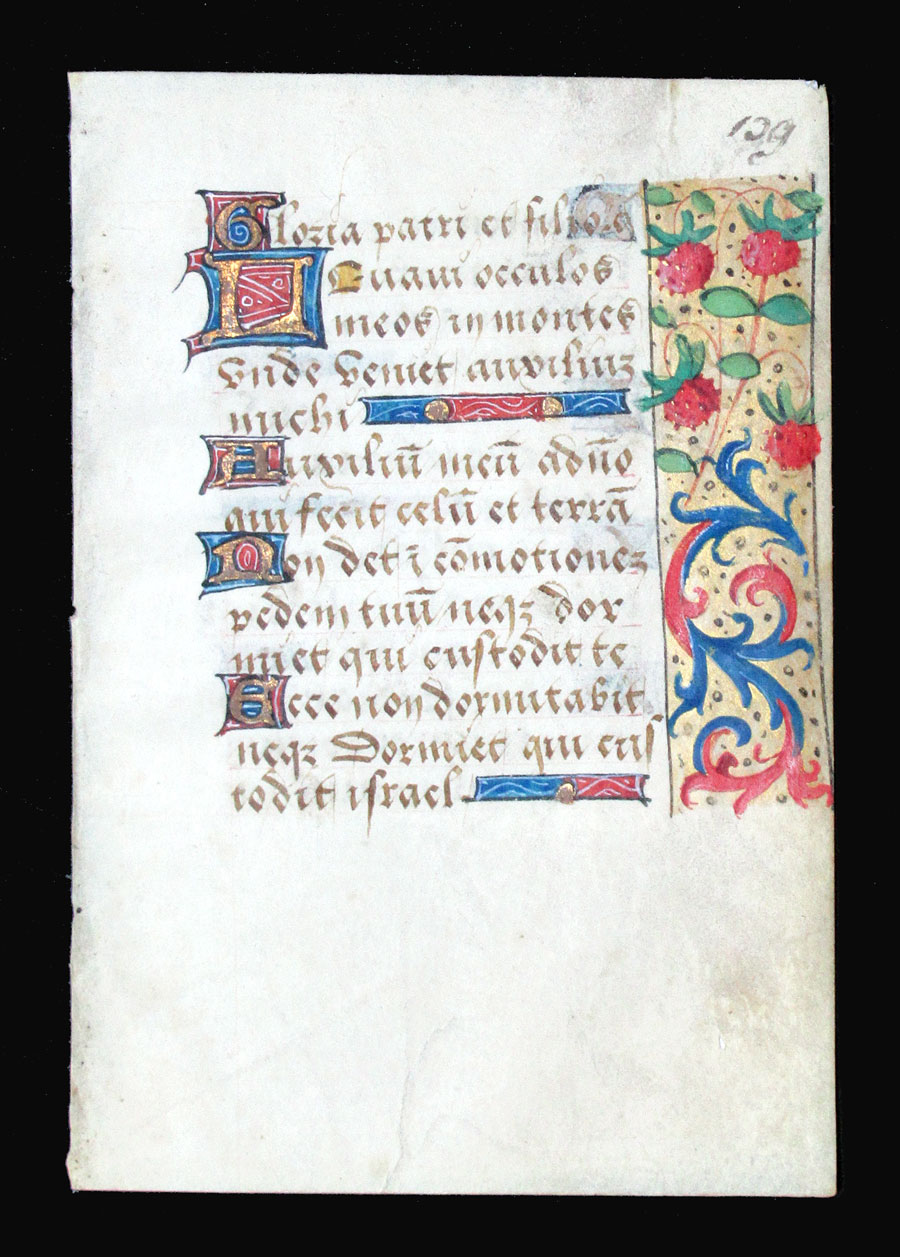 139
Gloria patri et filio
Leuaui occulos
meos in montes
vnde veniet auxiliuz
michi
Auxiliū meū a dn̄o
qui fecit celū et terrā
Non det ī cōmotionez
pedem tuū neqz dor
miet qui custodit te
Ecce non dormitabit
neqz Dormiet qui cus
todit israel